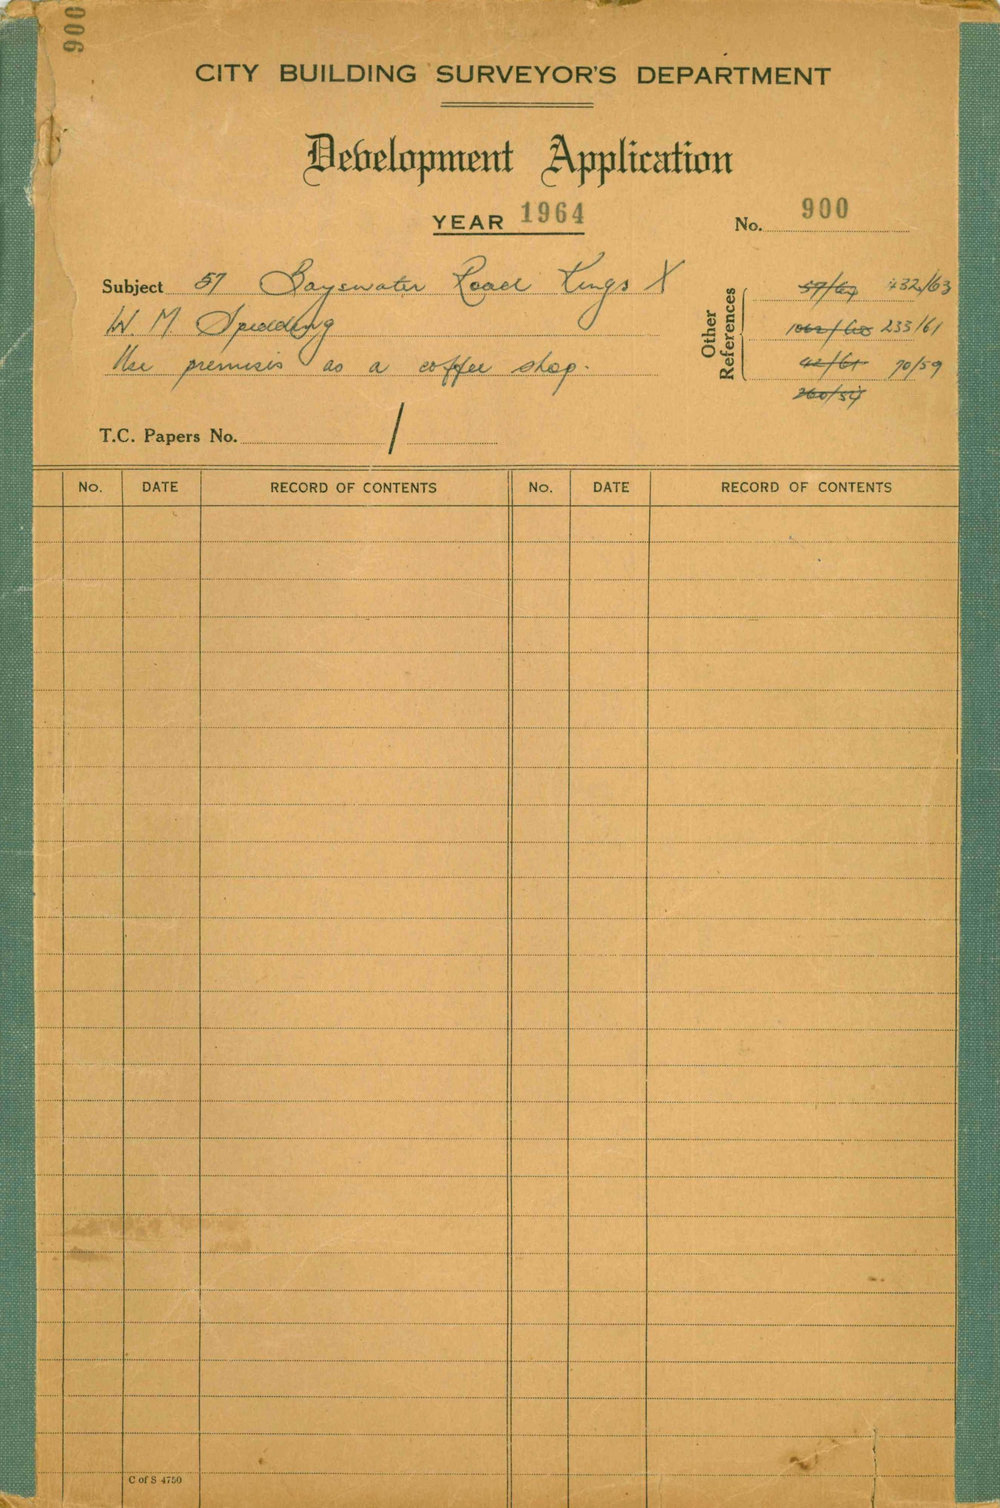 900
CITY BUILDING SURVEYOR'S DEPARTMENT
Development Application
YEAR 1964
No. 900
Subject 57 Bayswater Road Kings X
W M Spedding
Use premises as a coffee shop.
Other References
57/62 432/63
1062/60 233/61
42/61 70/59
260/54
T.C. Papers No. /
No. DATE RECORD OF CONTENTS No. DATE RECORD OF CONTENTS
C of S 4750